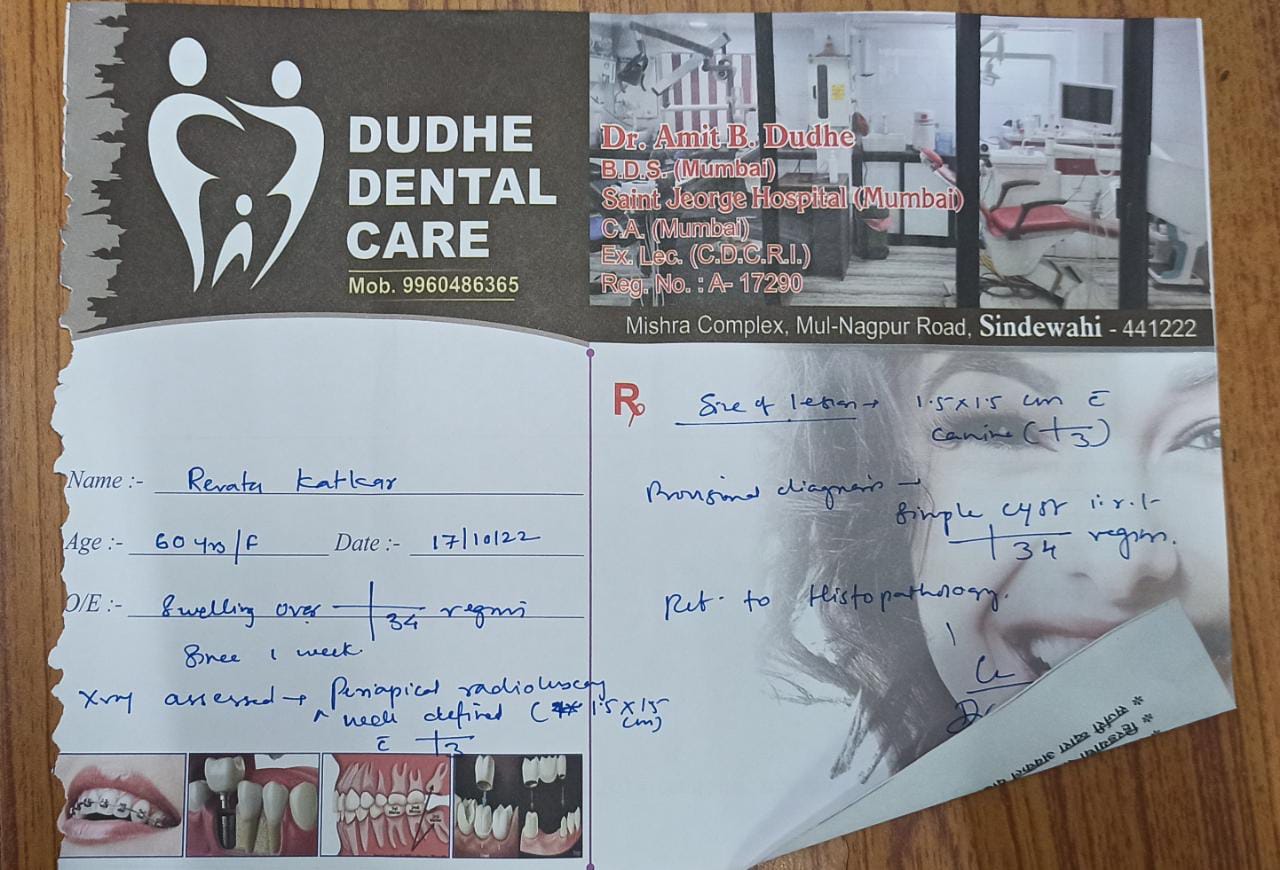 DUDHE
DENTAL
CARE
Mob. 9960486365
Dr. Amit B. Dudhe
B.D.S. (Mumbai)
Saint Jeorge Hospital (Mumbai)
C.A. (Mumbai)
Ex. Lec. (C.D.C.R.I.)
Reg. No. : A- 17290
Mishra Complex, Mul-Nagpur Road, Sindewahi - 441222
Name :- Revata Katkar
Age :- 60 yrs/F Date :- 17/10/22
O/E :- Swelling over 34 region
Since 1 week.
Xray assessed → Periapical radiolucency
well defined (1.5 x 1.5 cm)
c̄ 3
Rx
Size of lesion → 1.5 x 1.5 cm c̄
canine ( 3)
Provisional diagnosis →
Simple cyst i.r.t.
34 region.
Ref. to Histopathology.